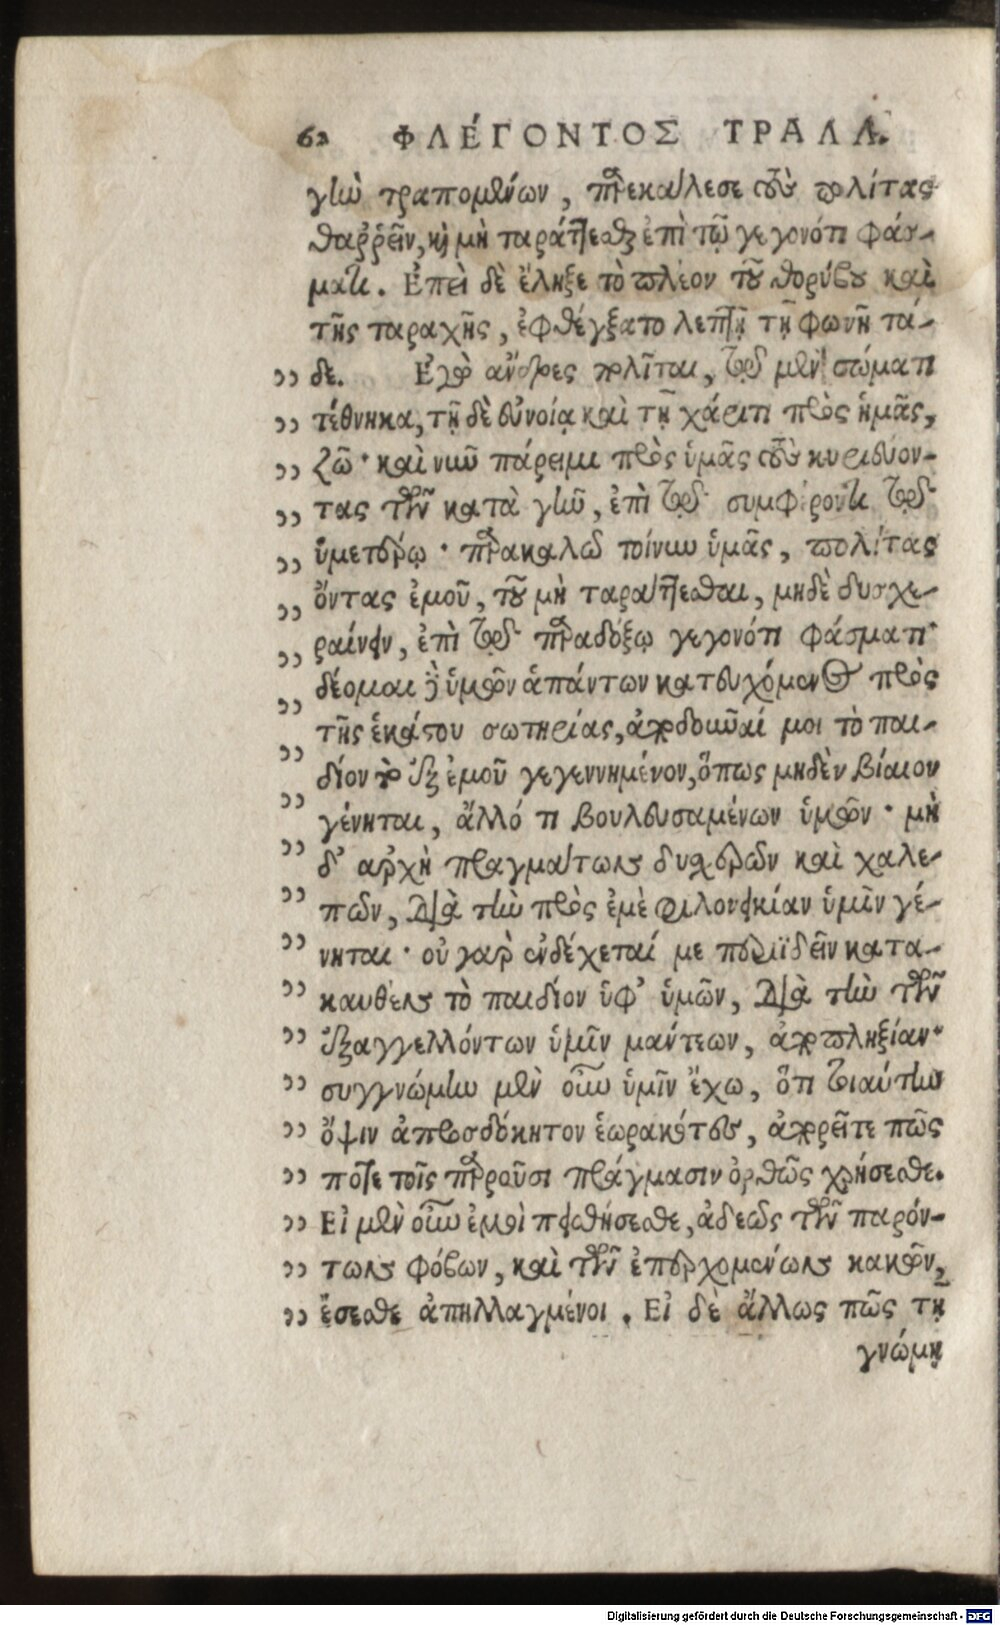 62 ΦΛΕΓΟΝΤΟΣ ΤΡΑΛΛ.
γὴν τραπομένων, παρεκάλεσε τοὺς πολίτας
θαῤῥεῖν, καὶ μὴ ταράττεσθαι ἐπὶ τῷ γεγονότι φάσ-
ματι. Ἐπεὶ δὲ ἔληξε τὸ πλέον τοῦ θορύβου καὶ
τῆς ταραχῆς, ἐφθέγξατο λεπτῇ τῇ φωνῇ τά-
„ δε. Ἐγὼ ἄνδρες πολῖται, τῷ μὲν σώματι
„ τέθνηκα, τῇ δὲ εὐνοίᾳ καὶ τῇ χάριτι πρὸς ἡμᾶς,
„ ζῶ· καὶ νῦν πάρειμι πρὸς ὑμᾶς τοὺς κυριεύον-
„ τας τῶν κατὰ γῆν, ἐπὶ τῷ συμφέροντι τῷ
„ ὑμετέρῳ· παρακαλῶ τοίνυν ὑμᾶς, πολίτας
„ ὄντας ἐμοῦ, τοῦ μὴ ταράττεσθαι, μηδὲ δυσχε-
„ ραίνειν, ἐπὶ τῷ παραδόξῳ γεγονότι φάσματι·
„ δέομαι δὲ ὑμῶν ἁπάντων κατευχόμενος πρὸς
„ τῆς ἑκάστου σωτηρίας, ἀποδοῦναί μοι τὸ παι-
„ δίον τὸ ἐξ ἐμοῦ γεγεννημένον, ὅπως μηδὲν βίαιον
„ γένηται, ἄλλό τι βουλευσαμένων ὑμῶν· μὴ
„ δ' ἀρχὴ πραγμάτων δυσχερῶν καὶ χαλε-
„ πῶν, διὰ τὴν πρὸς ἐμὲ φιλονεικίαν ὑμῖν γέ-
„ νηται· οὐ γὰρ ἐνδέχεταί με περιϊδεῖν κατα-
„ καυθὲν τὸ παιδίον ὑφ' ὑμῶν, διὰ τὴν τῶν
„ ἐξαγγελλόντων ὑμῖν μάντεων, ἀποπληξίαν·
„ συγγνώμην μὲν οὖν ὑμῖν ἔχω, ὅτι τοιαύτην
„ ὄψιν ἀπροσδόκητον ἑωρακότες, ἀπορεῖτε πῶς
„ πότε τοῖς παροῦσι πράγμασιν ὀρθῶς χρήσεσθε.
„ Εἰ μὲν οὖν ἐμοὶ πεισθήσεσθε, ἀδεῶς τῶν παρόν-
„ των φόβων, καὶ τῶν ἐπερχομένων κακῶν,
„ ἔσεσθε ἀπηλλαγμένοι. Εἰ δὲ ἄλλως πῶς τῇ
γνώμῃ
Digitalisierung gefördert durch die Deutsche Forschungsgemeinschaft - DFG